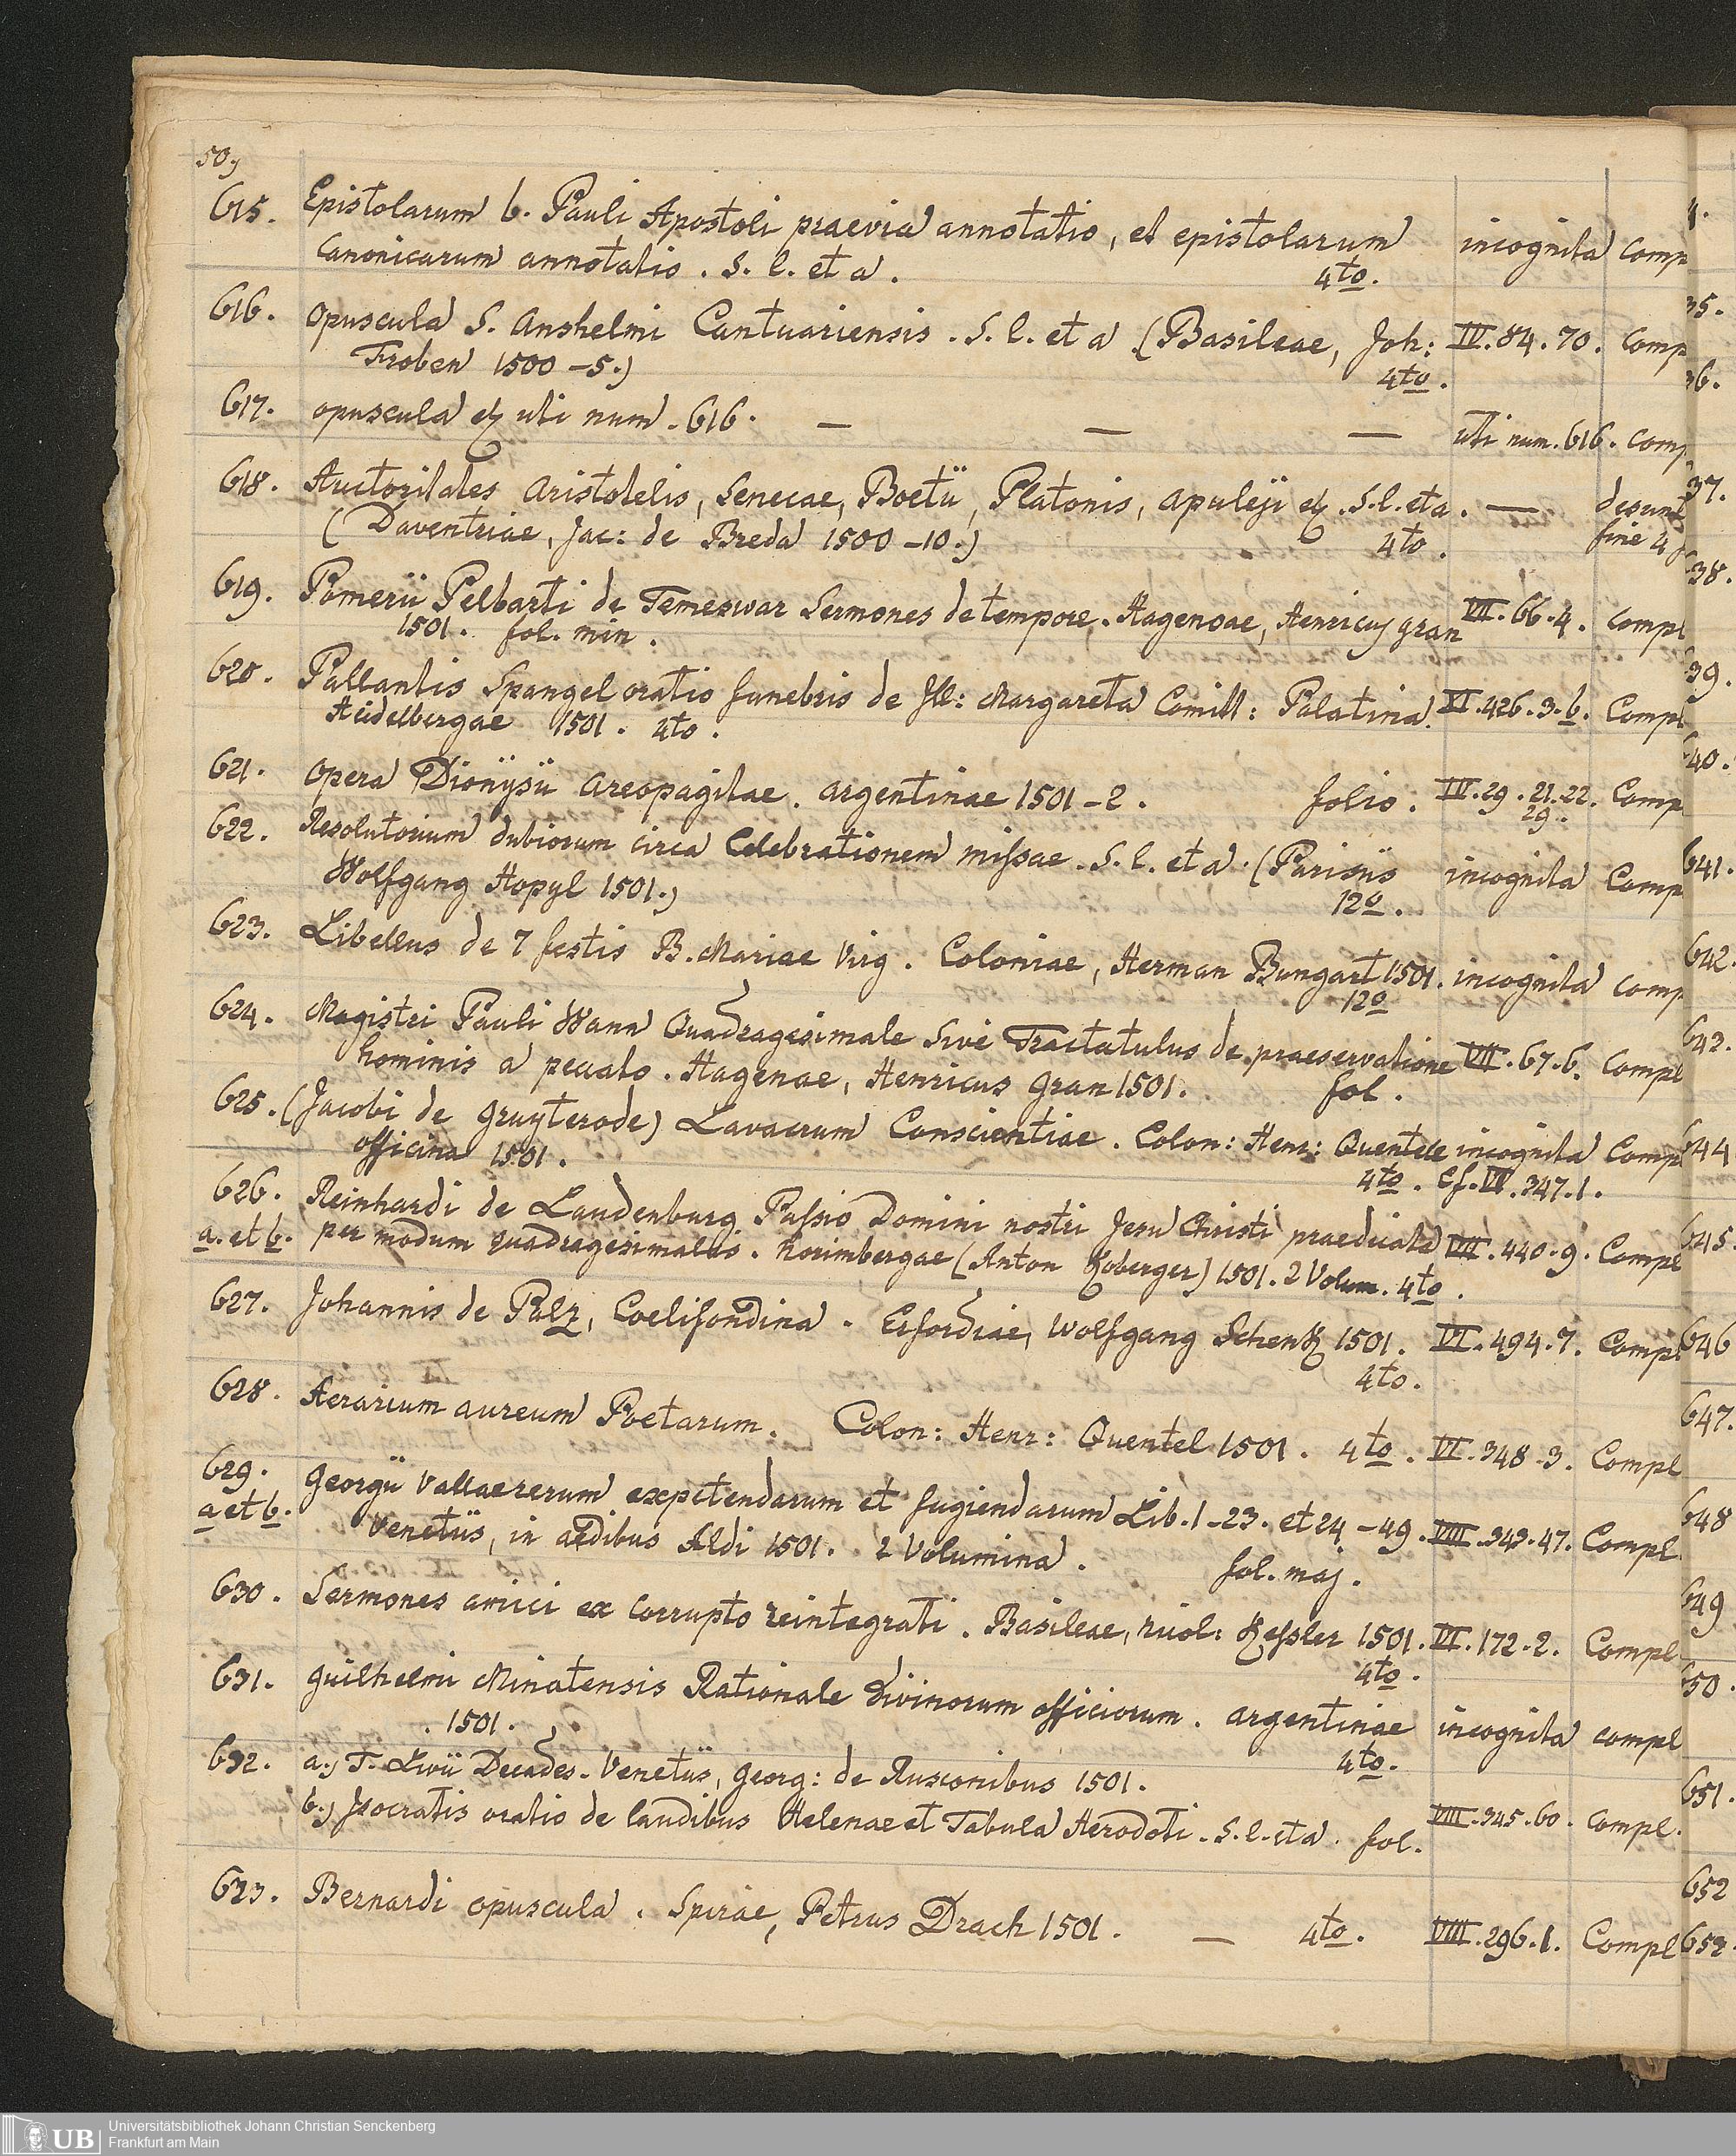 50.)
615. Epistolarum b. Pauli Apostoli praevia annotatio, et epistolarum incognita Comp
Canonicarum annotatio. S. l. et a. 4to.
616. Opuscula S. Anshelmi Cantuariensis. S. l. et a (Basileae, Joh: IV. 84. 70. Comp
Froben 1500-5.) 4to.
617. opuscula uti num. 616. — — — uti num. 616. Comp
618. Auctoritates Aristotelis, Senecae, Boetii, Platonis, Apuleji S. l. et a. — desunt
(Daventriae, Jac: de Breda 1500-10.) 4to. fine 4
619. Pomerii Pelbarti de Temeswar Sermones de tempore. Hagenoae, Henricus gran VII. 66. 4. Compl
1501. fol. min.
620. Pallantis Spangel oratio funebris de Ill: Margareta Comitt: Palatina. VI. 426. 3. b. Compl
Heidelbergae 1501. 4to.
621. Opera Dionÿsii Areopagitae. Argentinae 1501-2. folio. IV. 29. 21. 22. Comp
29.
622. Resolutorium dubiorum circa Celebrationem missae. S. l. et a. (Parisiis incognita Comp
Wolfgang Hopyl 1501.) 12o.
623. Libellus de 7 festis B. Mariae Virg. Coloniae, Herman Bungart 1501. incognita Comp
12o
624. Magistri Pauli Wann Quadragesimale Sive Tractatulus de praeservatione VII. 67. 6. Compl
hominis a peccato. Hagenae, Henricus Gran 1501. fol.
625. (Jacobi de Gruyterode) Lavacrum Conscientiae. Colon: Henr: Quentele incognita Compl
officina 1501. 4to. Cf. VI. 347. 1.
626. Reinhardi de Laudenburg Passio Domini nostri Jesu Christi praedicata VIII. 440. 9. Compl
a. et b. per modum quadragesimalis. Norimbergae (Anton Koberger) 1501. 2 Volum. 4to.
627. Johannis de Palz, Coelifondina. Erfordiae, Wolfgang Schenk 1501. VI. 494. 7. Compl
4to.
628. Aerarium aureum Poetarum. Colon: Henr: Quentel 1501. 4to. VI. 348. 3. Compl
629. Georgii Vallae rerum expetendarum et fugiendarum Lib. 1-23. et 24-49. VIII. 343. 47. Compl.
a et b. Venetiis, in aedibus Aldi 1501. 2 Volumina. fol. maj.
630. Sermones amici ex corrupto reintegrati. Basileae, Nicol: Kessler 1501. VI. 172. 2. Compl
4to.
631. Guilhelmi Minatensis Rationale divinorum officiorum. Argentinae incognita Compl
1501. 4to.
632. a.) T. Livii Decades. Venetiis, Georg: de Rusconibus 1501.
b.) Isocratis oratio de laudibus Helenae et Tabula Herodoti. S. l. et a. fol. VIII. 345. 60. Compl.
633. Bernardi opuscula. Spirae, Petrus Drach 1501. — 4to. VIII. 296. 1. Compl
35.
36.
37.
38.
39.
40.
641.
642.
643.
644
645.
646
647.
648
649
650.
651.
652
653.
UB
Universitätsbibliothek Johann Christian Senckenberg
Frankfurt am Main